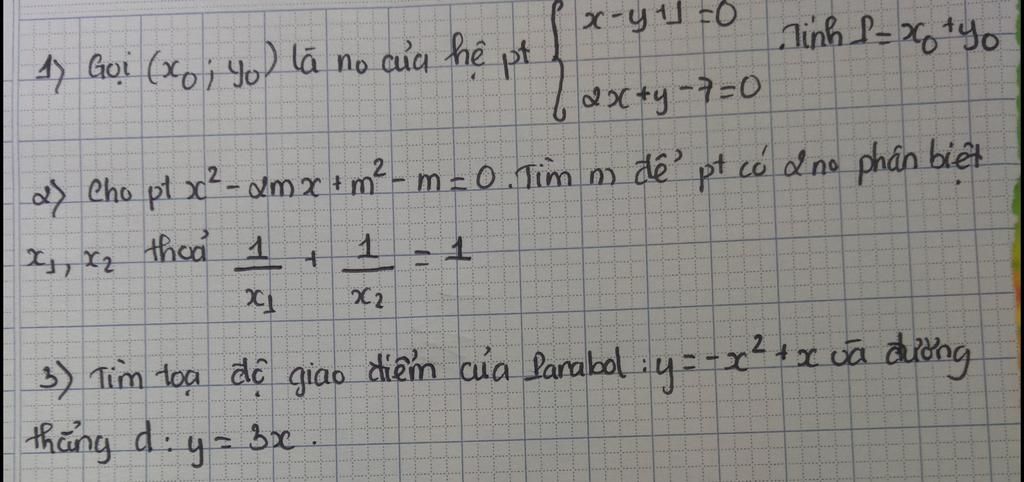 1) Gọi (x₀; y₀) là no của hệ pt { x-y+1=0 . Tính P=x₀+y₀
2x+y-7=0
2) Cho pt x²-2mx+m²-m=0. Tìm m để pt có 2 no phân biệt
x₁, x₂ thoả 1/x₁ + 1/x₂ = 1
3) Tìm toạ độ giao điểm của Parabol: y=-x²+x và đường
thẳng d: y=3x.